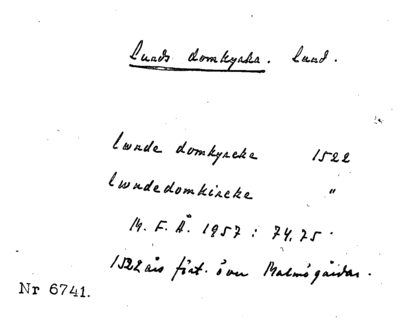 Lunds domkyrka. Lund.
lwnde domkyrcke 1522
lwndedomkircke "
M. F. Å. 1957 : 74, 75
1522 års fört. över Malmögårdar.
Nr 6741.